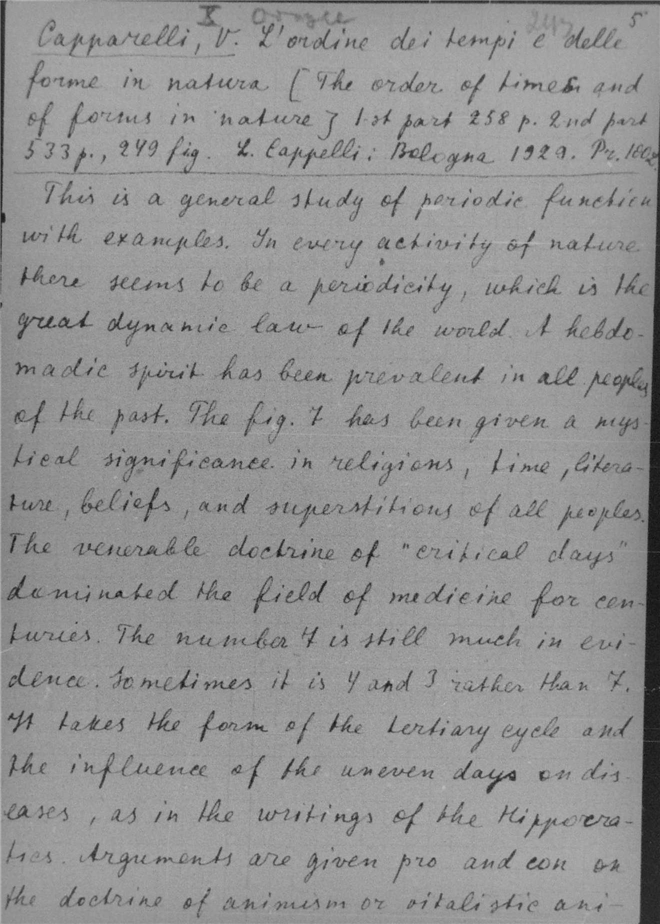 X
5
Capparelli, V. L'ordine dei tempi e delle
forme in natura [The order of times and
of forms in nature] 1st part 258 p. 2nd part
533 p., 249 fig. L. Cappelli: Bologna 1929. Pr.
This is a general study of periodic function
with examples. In every activity of nature
there seems to be a periodicity, which is the
great dynamic law of the world. A hebdo-
madic spirit has been prevalent in all peoples
of the past. The fig. 7 has been given a mys-
tical significance in religions, time, litera-
ture, beliefs, and superstitions of all peoples.
The venerable doctrine of "critical days"
dominated the field of medicine for cen-
turies. The number 7 is still much in evi-
dence. Sometimes it is 4 and 3 rather than 7.
It takes the form of the tertiary cycle and
the influence of the uneven days on dis-
eases, as in the writings of the Hippocra-
tics. Arguments are given pro and con on
the doctrine of animism or vitalistic ani-